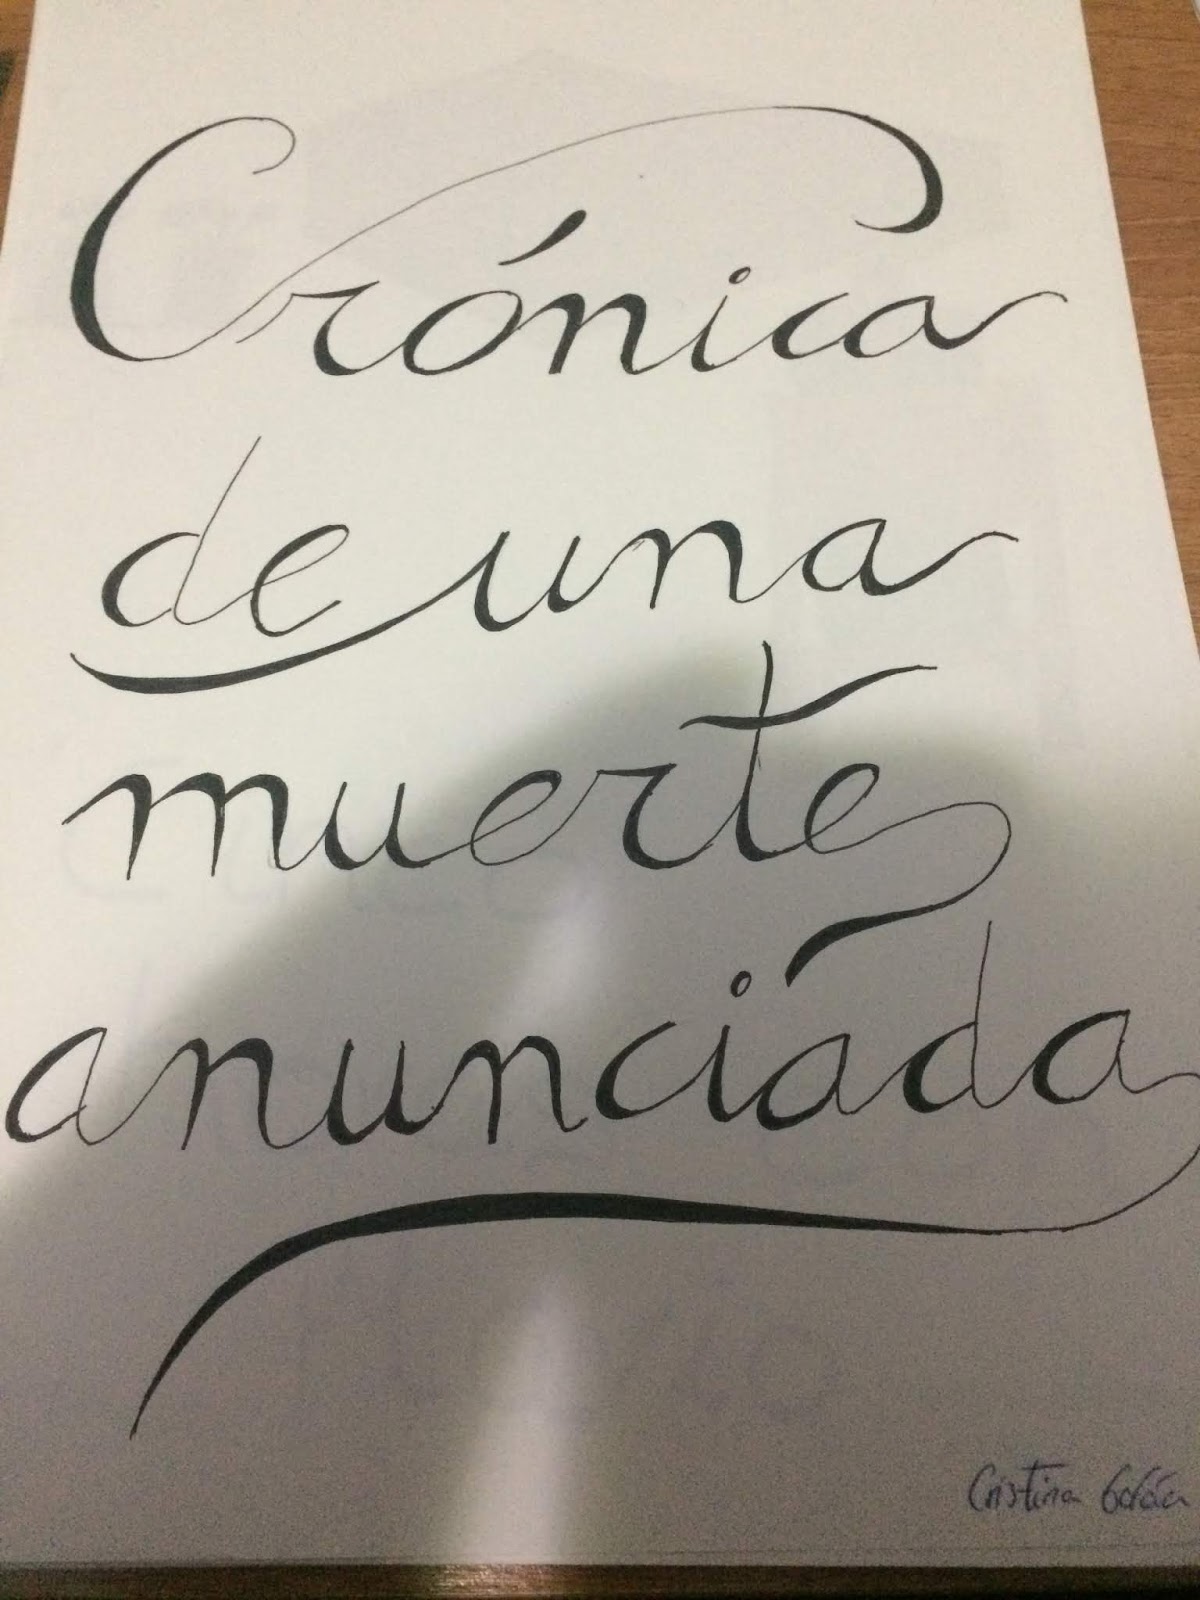 Crónica
de una
muerte
anunciada
Cristina